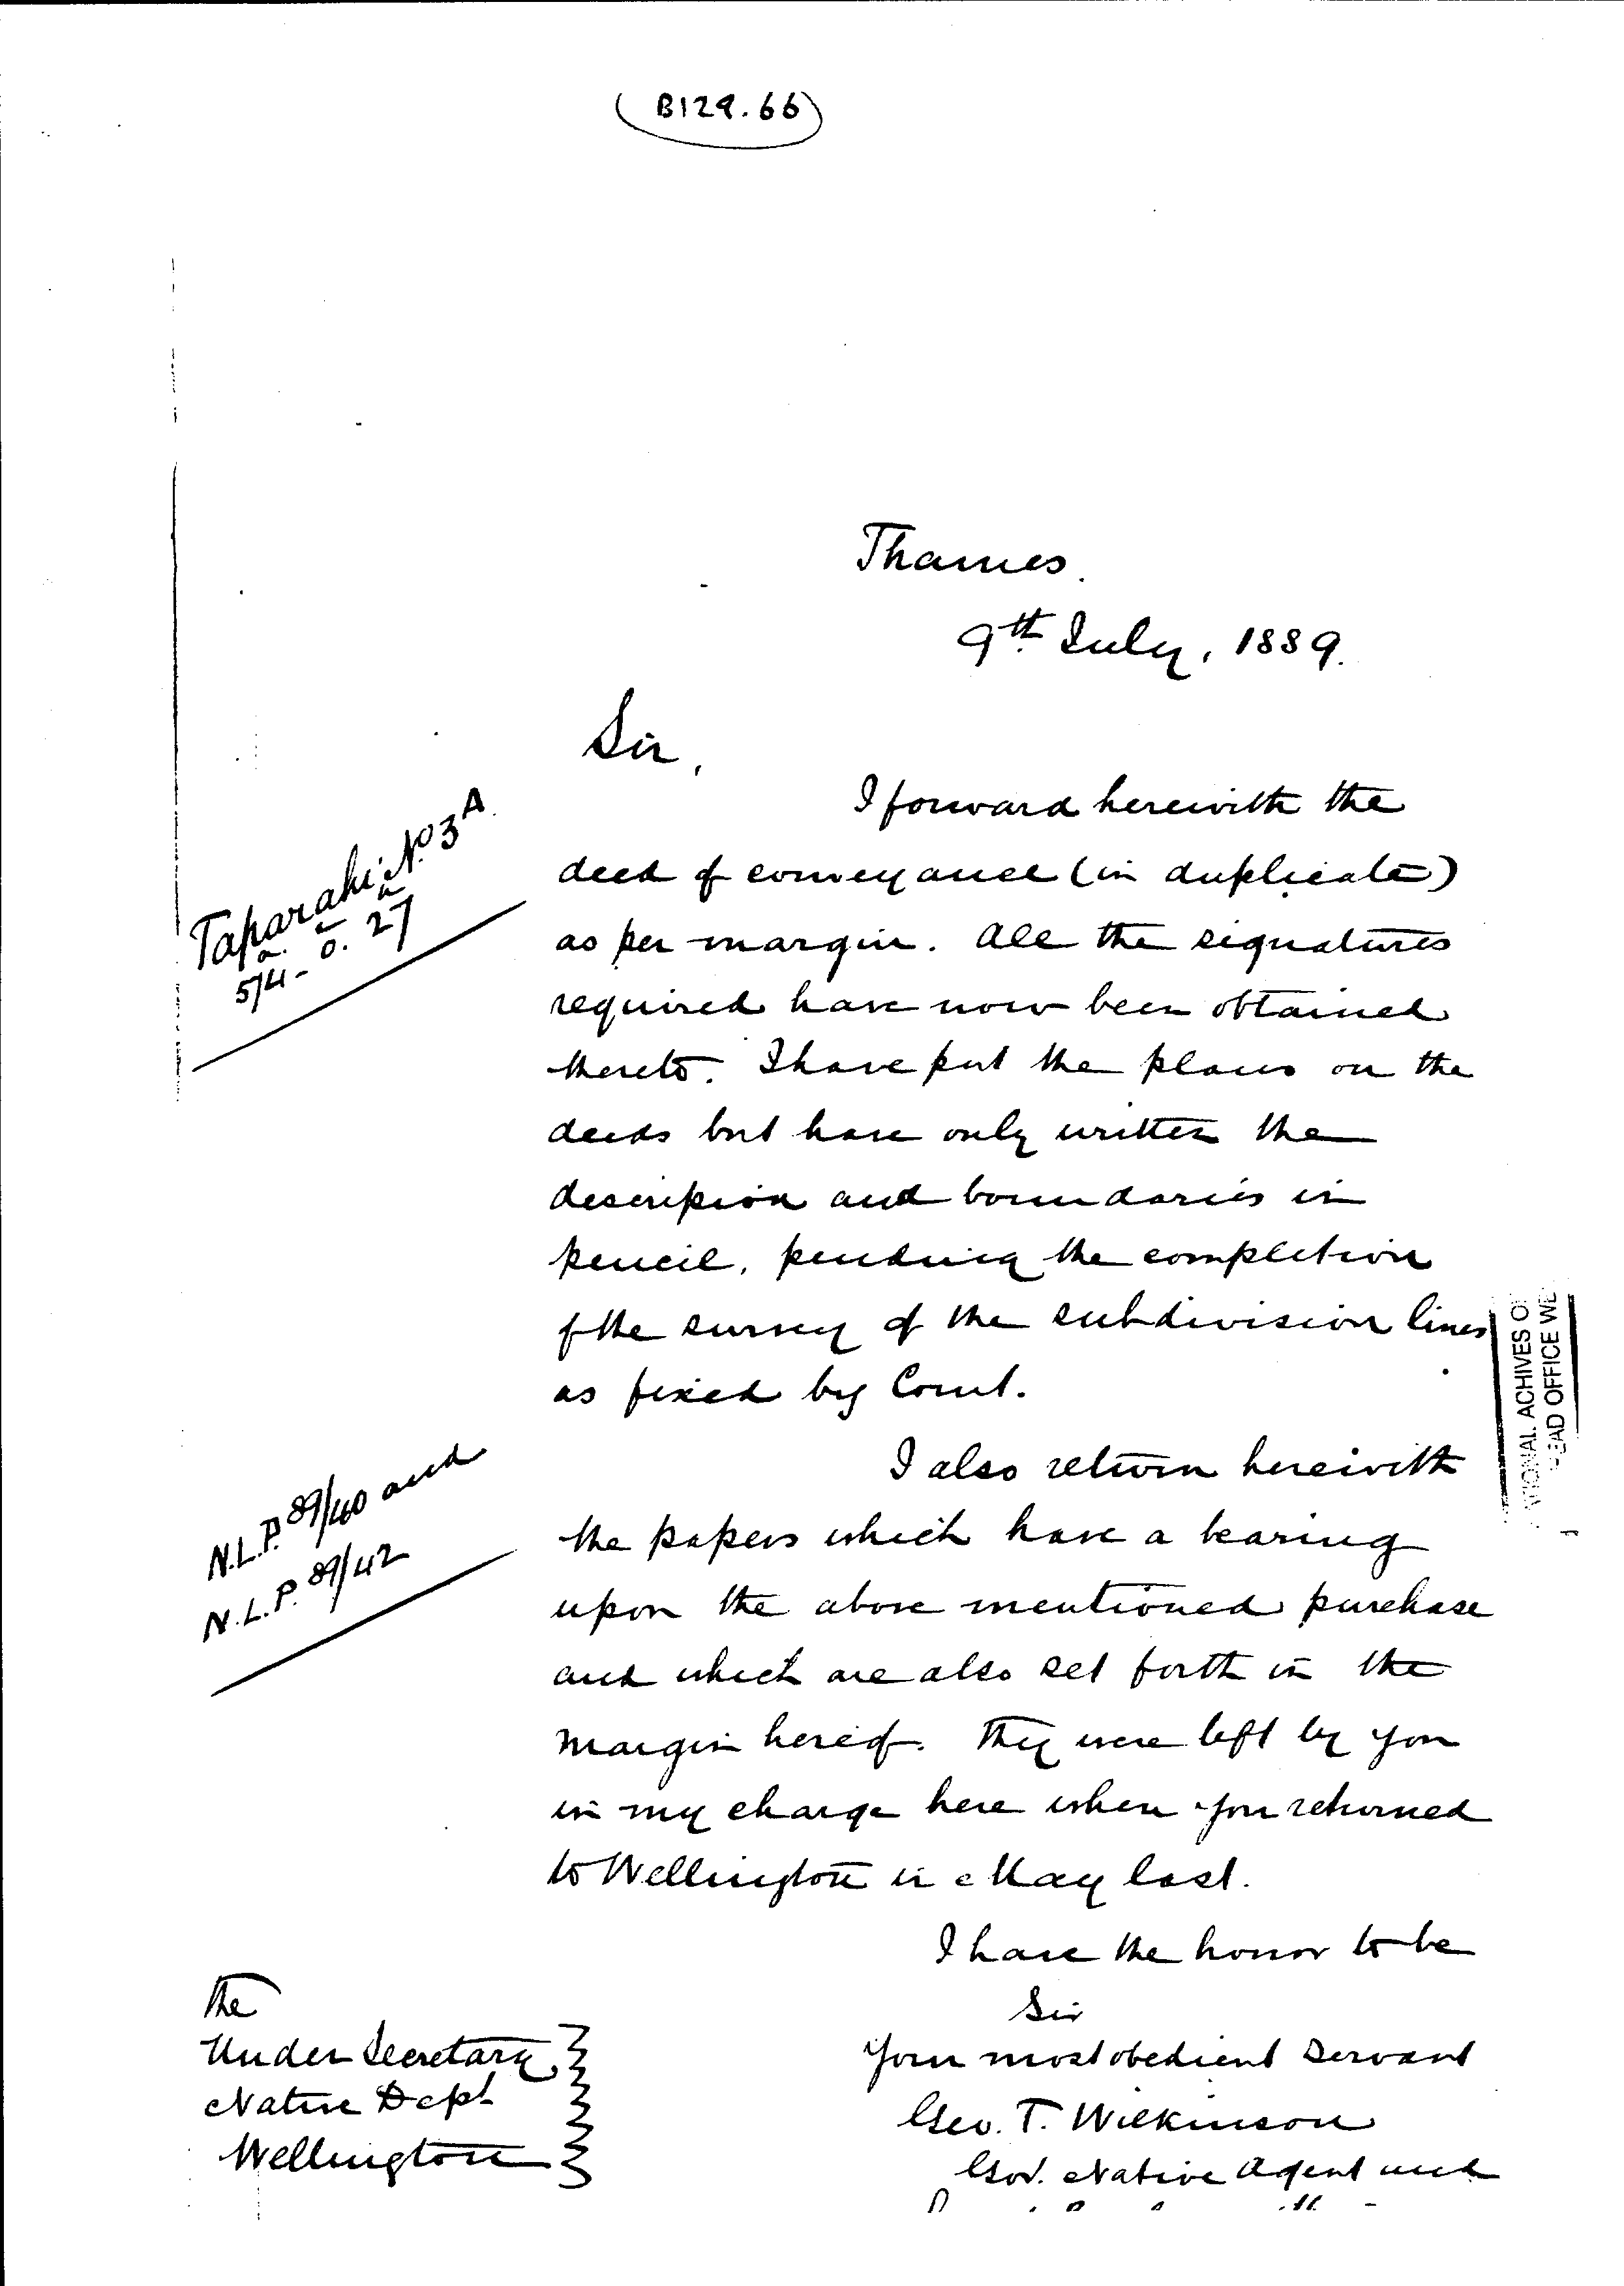 B129.66
Thames.
9th July, 1889.
Sir,
I forward herewith the
deed of conveyance (in duplicate)
as per margin. All the signatures
required have now been obtained
thereto. I have put the plans on the
deeds but have only written the
descripion and boundaries in
pencil, pending the completion
of the survey of the subdivision lines
as fixed by Court.
Taparahi No 3A
a. r. p.
574 - 0. 27
I also return herewith
the papers which have a bearing
upon the above mentioned purchase
and which are also set forth in the
margin hereof. They were left by you
in my charge here when you returned
to Wellington in May last.
N.L.P. 89/40 and
N.L.P. 89/42
I have the honor to be
Sir
Your most obedient servant
Geo. T. Wilkinson
Gov. Native Agent and
The
Under Secretary
Native Dept
Wellington
TIONAL ACHIVES O
EAD OFFICE WE